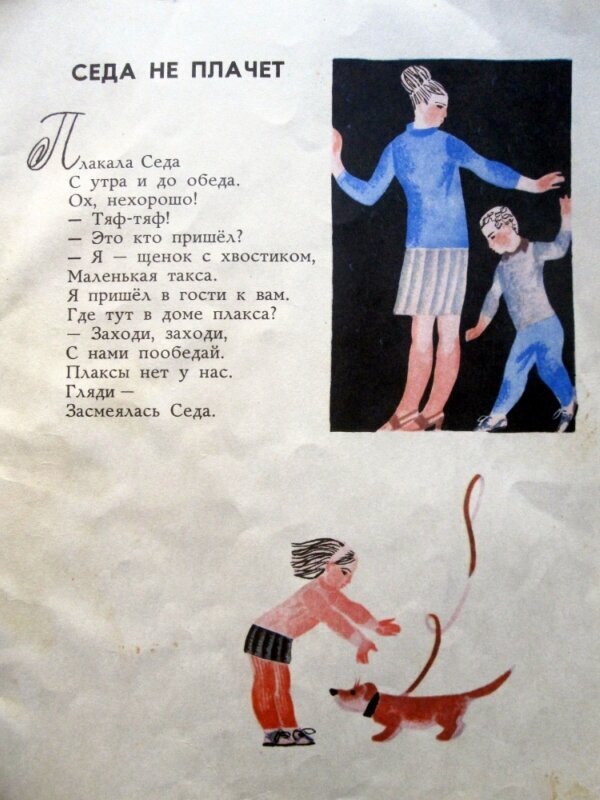 СЕДА НЕ ПЛАЧЕТ
Плакала Седа
С утра и до обеда.
Ох, нехорошо!
— Тяф-тяф!
— Это кто пришёл?
— Я — щенок с хвостиком,
Маленькая такса.
Я пришёл в гости к вам.
Где тут в доме плакса?
— Заходи, заходи,
С нами пообедай.
Плаксы нет у нас.
Гляди —
Засмеялась Седа.